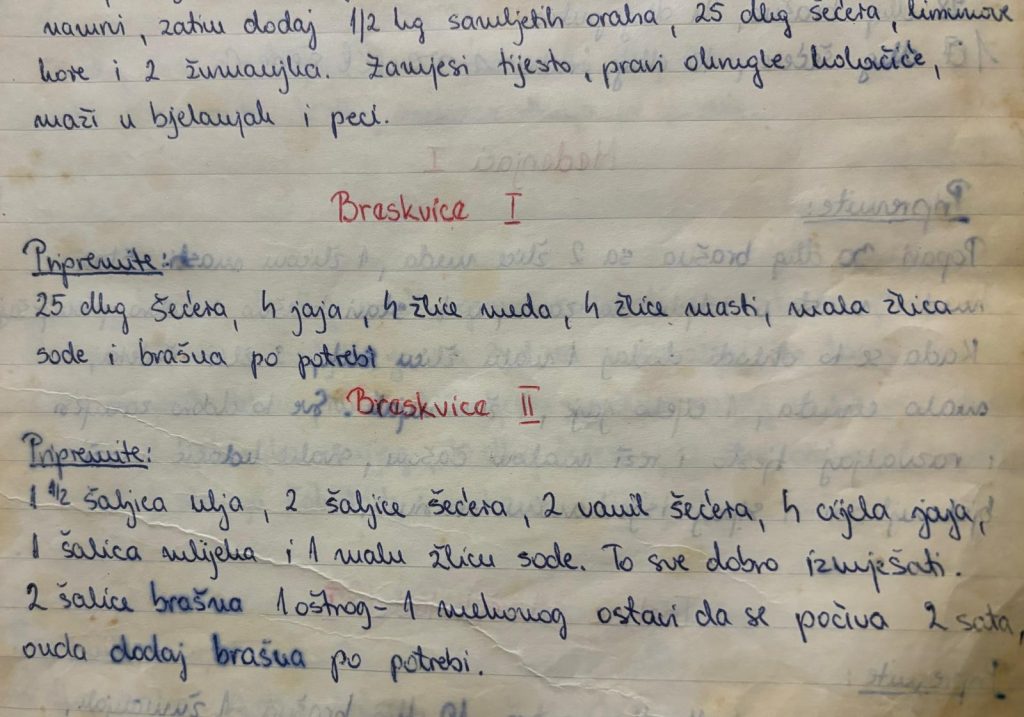 namrvi, zatim dodaj 1/2 kg samljetih oraha, 25 dkg šećera, limunove
kore i 2 žumanjka. Zamjesi tijesto, pravi okrugle kolačiće,
maži u bjelanjak i peci.
Breskvice I
Pripremite:
25 dkg šećera, 4 jaja, 4 žlice meda, 4 žlice masti, mala žlica
sode i brašna po potrebi
Breskvice II
Pripremite:
1 1/2 šaljica ulja, 2 šaljice šećera, 2 vanil šećera, 4 cijela jaja,
1 šalica mlijeka i 1 malu žlicu sode. To sve dobro izmješati.
2 šalice brašna 1 oštrog - 1 mekonog ostavi da se počiva 2 sata,
onda dodaj brašna po potrebi.